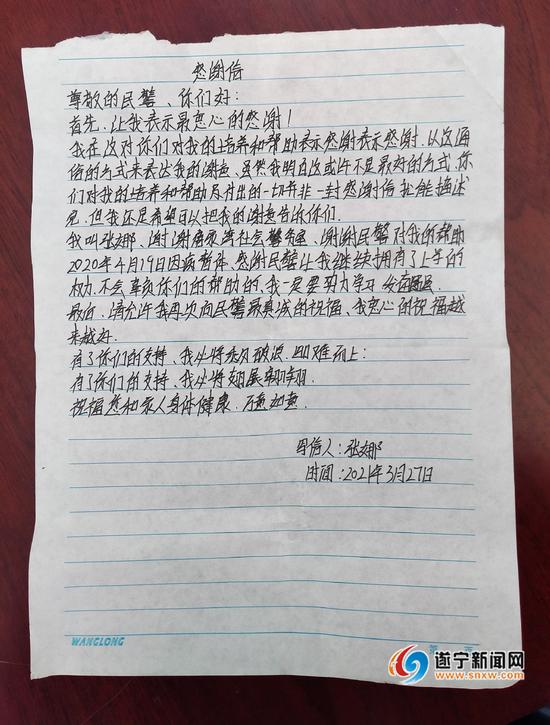 感谢信
尊敬的民警、你们好:
首先,让我表示最衷心的感谢!
我在这对你们对我的培养和帮助表示感谢表示感谢,以这通
俗的方式来表达我的谢意、虽然我明白这或许不是最好的方式,你
们对我的培养和帮助及付出的一切节非一封感谢信把能描述
见,但我还是希望可以把我的谢意告的你们.
我叫张娜、谢谢 社会警务室、谢谢民警对我的帮助
2020年4月19日因病暂休,感谢民警让我继续拥有了上学的
权力,不会辜负你们的帮助的,我一定要努力学习
最后,请允许我再次向民警最真诚的祝福、我衷心的祝福越
来越好.
有了你们的支持、我必将乘风破浪、迎难而上:
有了你们的支持、我必将翅展翱翔.
祝福您和家人身体健康、万意如意.
写信人:张娜
时间:2021年3月27日
WANGLONG
第 页
遂宁新闻网
www.snxw.com